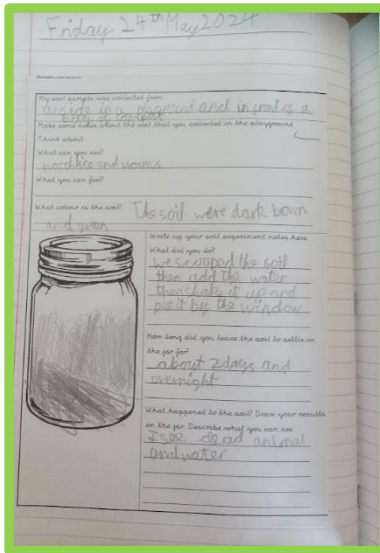 Friday 24th May 2024
My soil sample was collected from
outside in a playground and in front of a
bag of compost
Make some notes about the soil that you collected in the playground.
Think about:
What can you see?
woodlice and worms
What you can feel?
What colour is the soil? The soil were dark brown
and green
Write up your soil experiment notes here.
What did you do?
we scooped the soil
then add the water
then shake it up and
put it by the window
How long did you leave the soil to settle in
the jar for?
about 2 days and
overnight
What happened to the soil? Draw your results
on the jar. Describe what you can see.
I see dead animal
and water